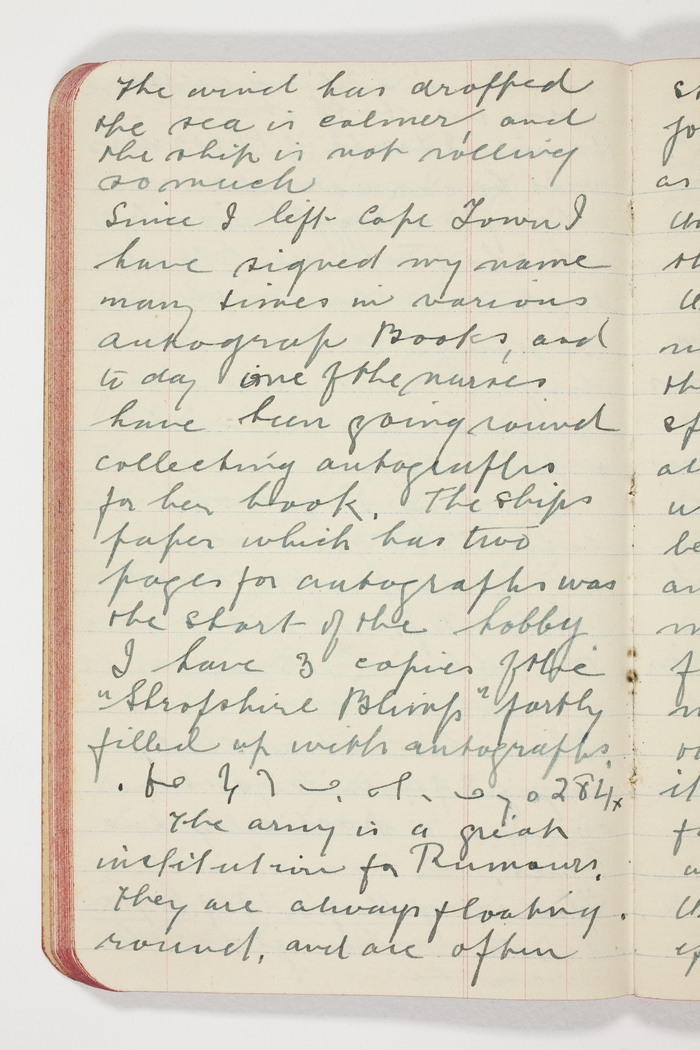 The wind has dropped
the sea is calmer, and
the ship is not rolling
so much
Since I left Cape Town I
have signed my name
many times in various
autograp Books, and
to day one of the nurses
have been going round
collecting autographs
for her book. The ships
paper which has two
pages for autographs was
the start of the hobby
I have 3 copies of the
"Shropshire Blimp" partly
filled up with autographs.
284
The army is a great
institution for Rumours.
They are always floating
round, and are often
st
fo
as